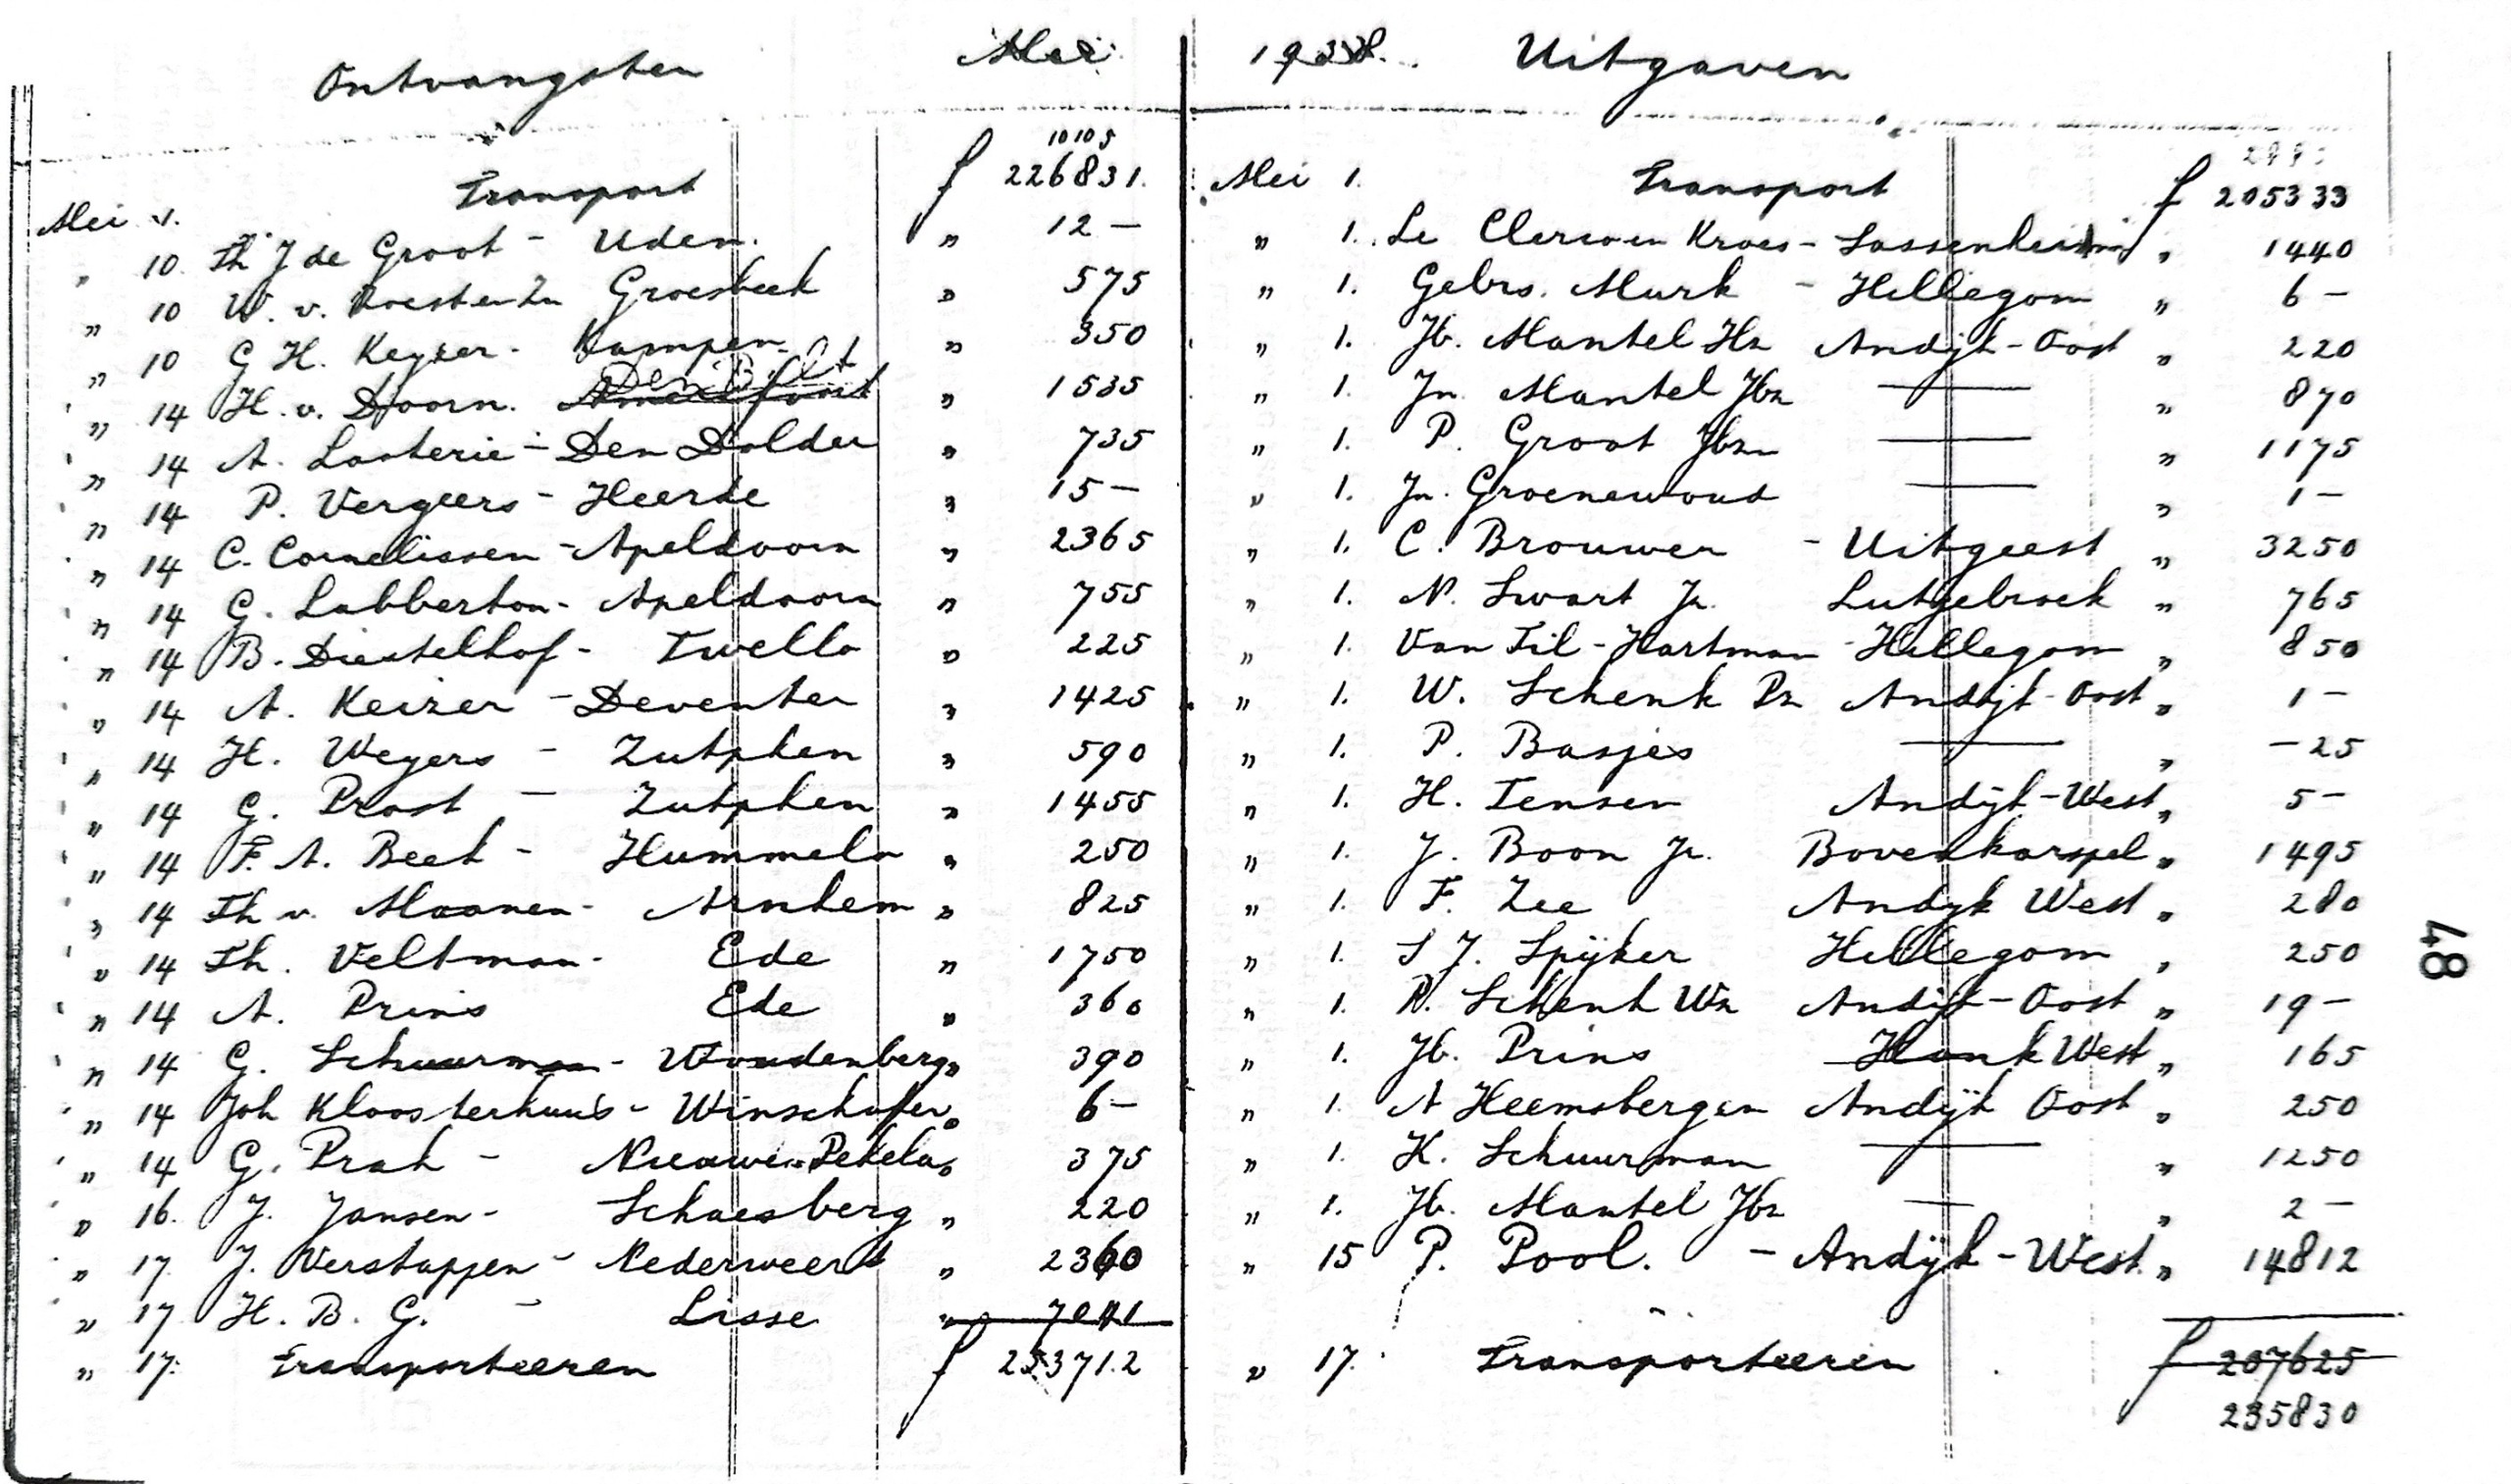 Ontvangsten Mei
10105
Transport f 226831.
Mei 1.
" 10 Th J de Groot - Uden. " 12 —
" 10 W. v. Groesbeek " 575
" 10 G H. Keyzer - Kampen " 350
Den Bilt
" 14 H. v. Doorn. Amersfoort " 1535
" 14 A. Lasterie - Den Dolder " 735
" 14 P. Vergeers - Heerde " 15 —
" 14 C. Cornelissen - Apeldoorn " 2365
" 14 G. Lubberton - Apeldoorn " 755
" 14 B. Diestelhof - Twello " 225
" 14 A. Keizer - Deventer " 1425
" 14 H. Wegers - Zutphen " 590
" 14 G. Prost - Zutphen " 1455
" 14 F. A. Beek - Hummelo " 250
" 14 Th v. Maanen - Arnhem " 825
" 14 Th. Veltman - Ede " 1750
" 14 A. Prins Ede " 360
" 14 G. Schuurman - Woudenberg " 390
" 14 Joh Kloosterhuis - Winschoten " 6 —
" 14 G. Prak - Nieuwe-Pekela " 375
" 16. J. Jansen - Schaesberg " 220
" 17. J. Verstappen - Nederweert " 2360
" 17 H. B. G. - Lisse "
" 17. Transporteeren f 253712
1938. Uitgaven
Mei 1. Transport f 205333
" 1. Le Clercq en Kroes - Sassenheim " 1440
" 1. Gebrs. Murk - Hillegom " 6 —
" 1. Jb. Mantel Hz Andijk - Oost " 220
" 1. Jn. Mantel Jbz — " 870
" 1. P. Groot Jbzn — " 1175
" 1. Jn. Groenewoud — " 1 —
" 1. C. Brouwer - Uitgeest " 3250
" 1. N. Swart Jr. Lutjebroek " 765
" 1. Van Til - Hartman - Hillegom " 850
" 1. W. Schenk Pz Andijk - Oost " 1 —
" 1. P. Basjes — " — 25
" 1. H. Tensen Andijk - West " 5 —
" 1. J. Boon Jr. Bovenkarspel " 1495
" 1. F. Zee Andijk West " 280
" 1. S J. Spijker Hillegom " 250
" 1. R. Schenk Wz Andijk - Oost " 19 —
" 1. Jb. Prins West " 165
" 1. A Heemsbergen Andijk Oost " 250
" 1. K. Schuurman — " 1250
" 1. Jb. Mantel Jbz — " 2 —
" 15 P. Pool. - Andijk - West " 14812
" 17. Transporteeren f 207625
235830
48